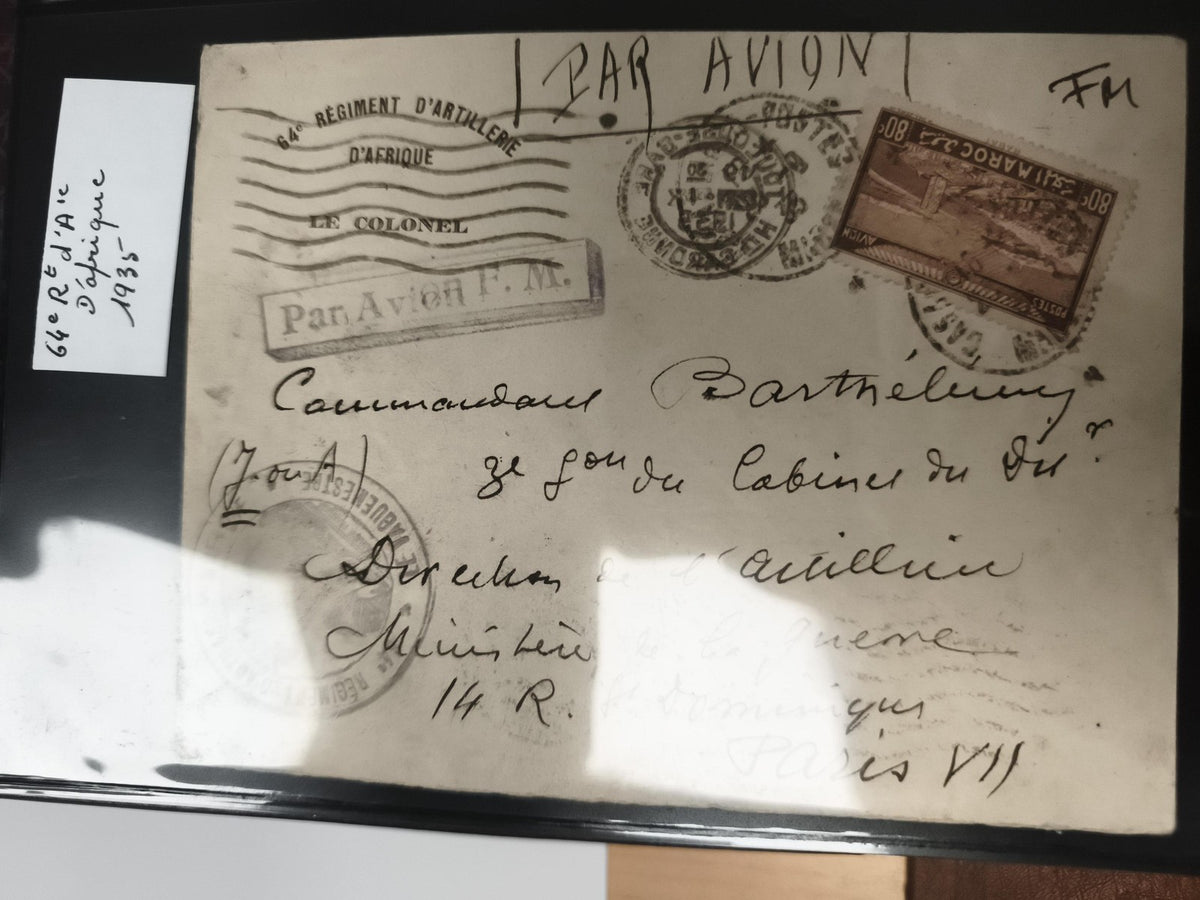 PAR AVION
FM
64e RÉGIMENT D'ARTILLERIE
D'AFRIQUE
LE COLONEL
Par Avion F. M.
80c MAROC 80c
AVION
POSTES
64e Rt d'Aie
D'afrique
1935
Commandant Barthélemy
du Cabinet du Dir
Direction de l'artillerie
Ministère de la guerre
14 R. St Dominique
Paris VII
VAGUEMESTRE
RÉGIMENT